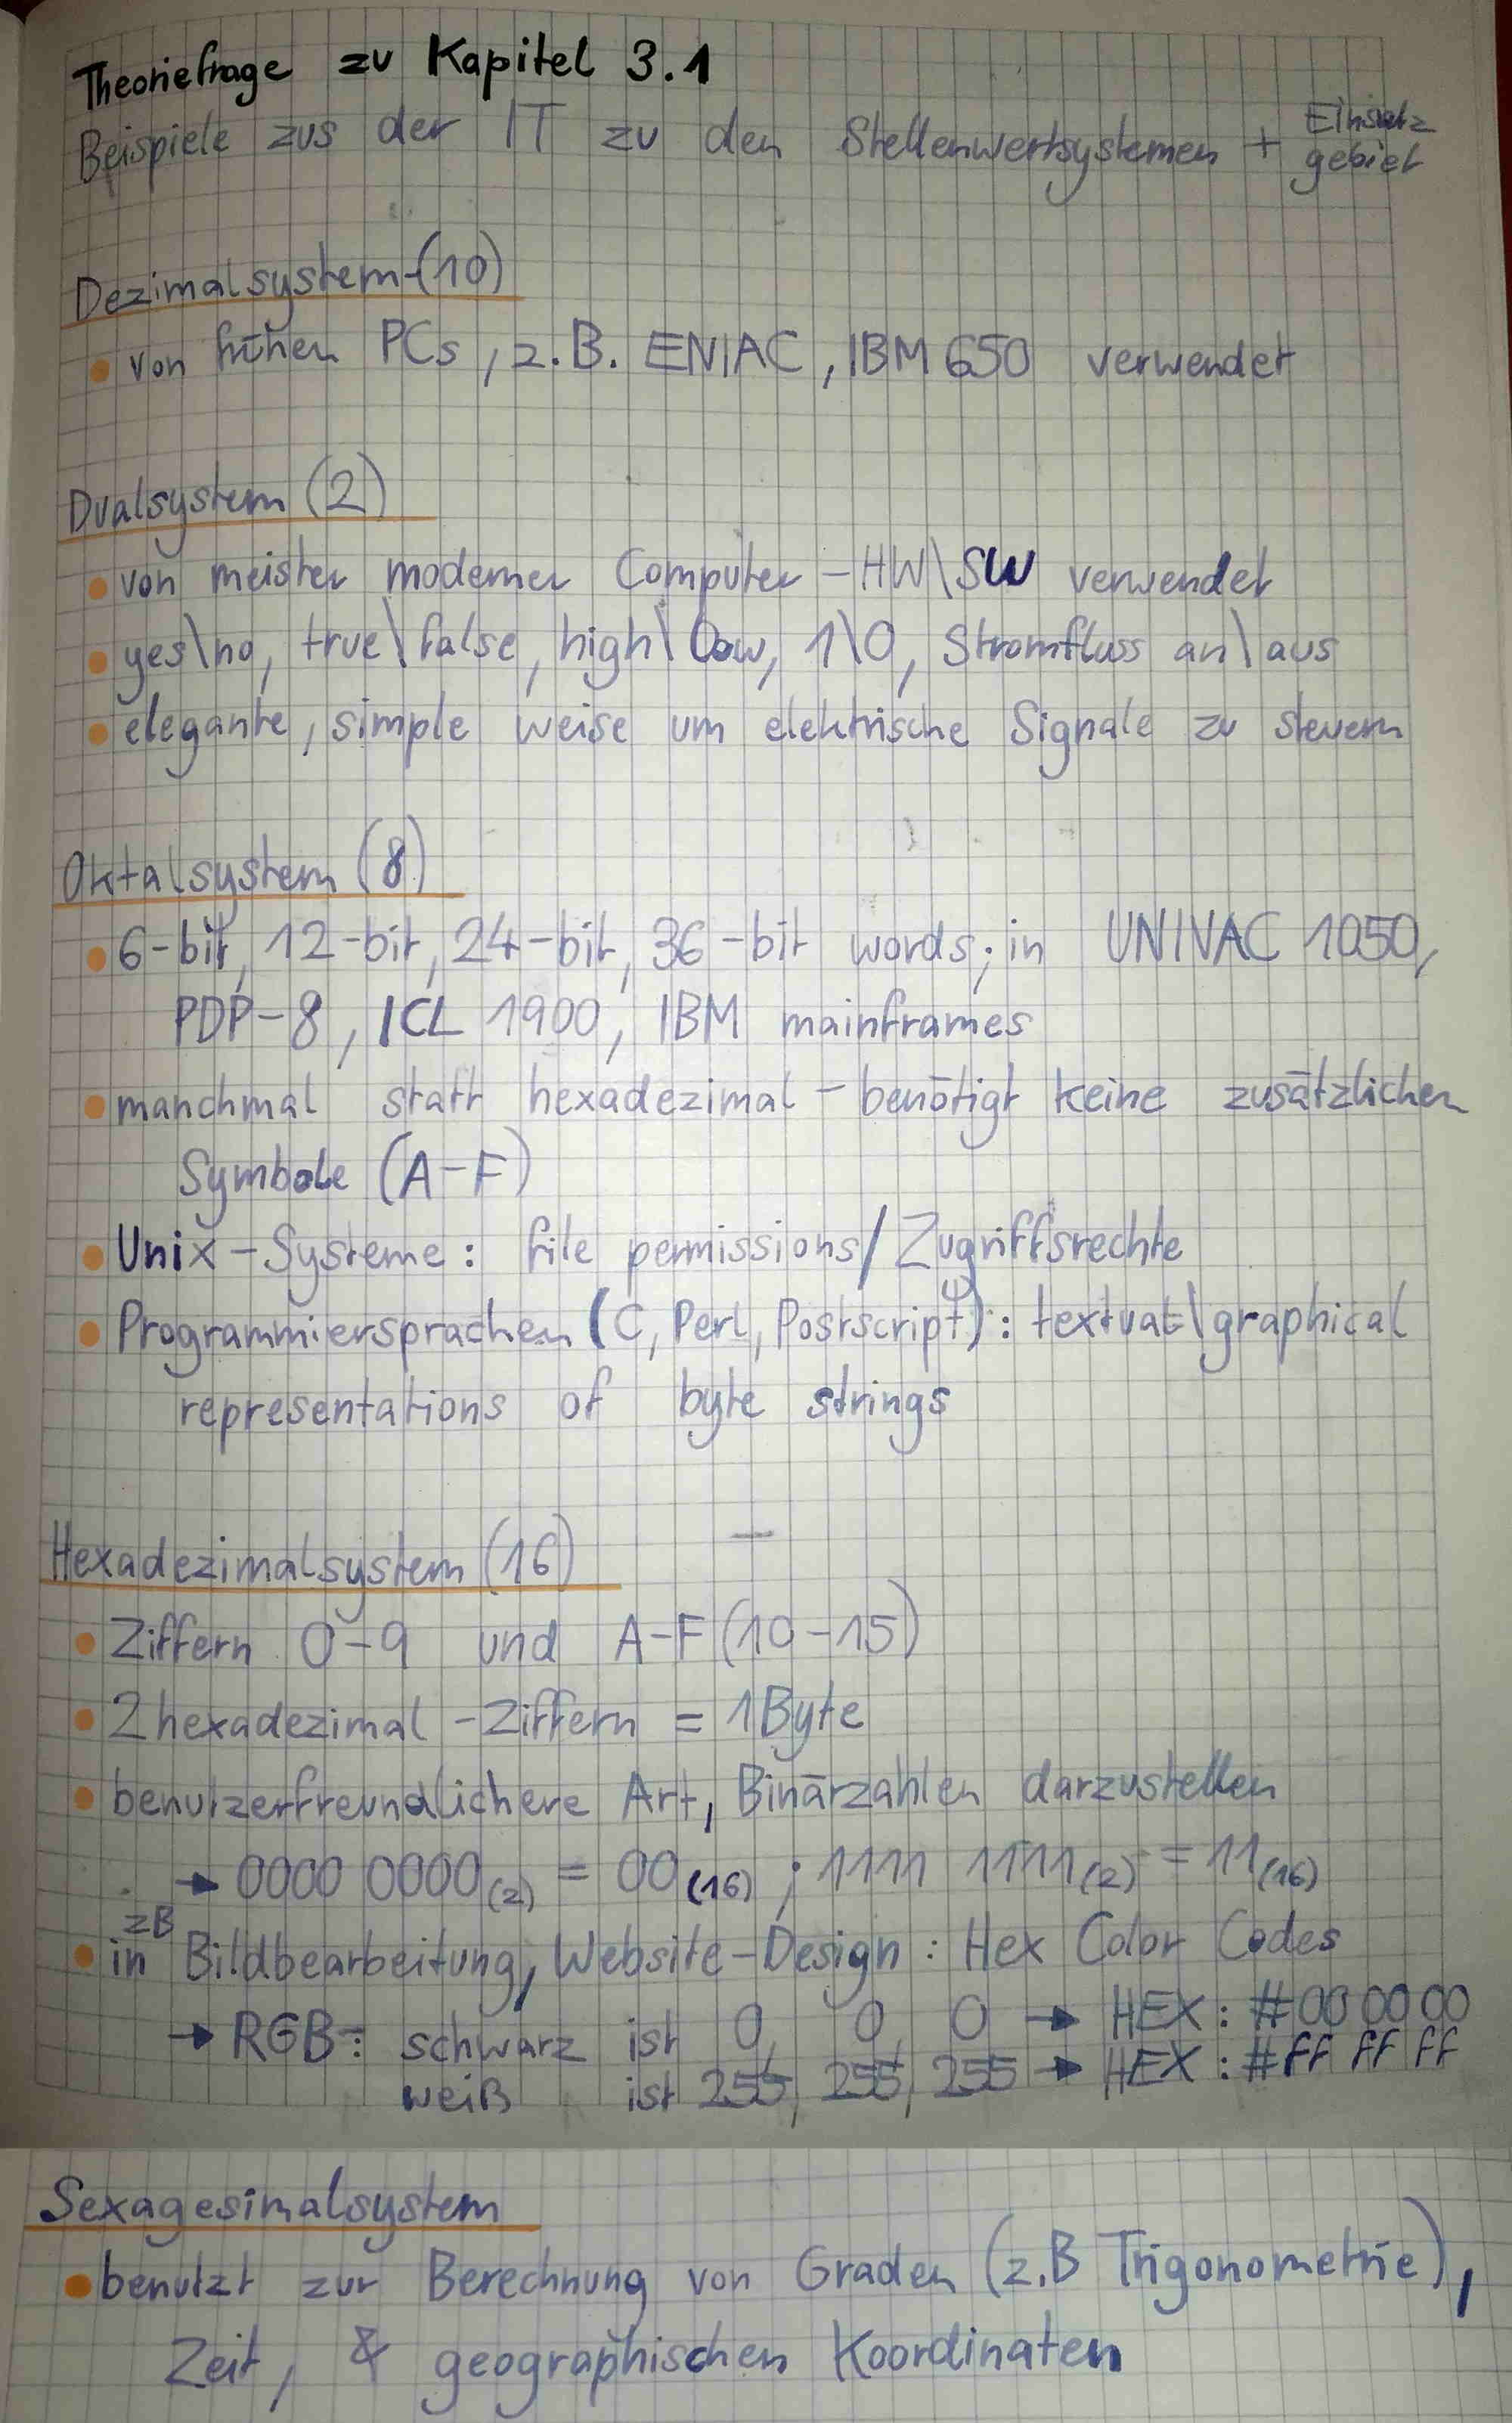 Theoriefrage zu Kapitel 3.1
Beispiele zus der IT zu den Stellenwertsystemen + Einsatz
gebiet
Dezimalsystem (10)
• von frühen PCs, z.B. ENIAC, IBM 650 verwendet
Dualsystem (2)
• von meister moderner Computer-HW\SW verwendet
• yes\no, true\false, high\low, 1\0, Stromfluss an\aus
• elegante, simple weise um elektrische Signale zu steuern
Oktalsystem (8)
• 6-bit, 12-bit, 24-bit, 36-bit words; in UNIVAC 1050,
PDP-8, ICL 1900, IBM mainframes
• manchmal statt hexadezimal - benötigt keine zusätzlichen
Symbole (A-F)
• Unix-Systeme: file permissions/Zugriffsrechte
• Programmiersprachen (C, Perl, Postscript): textual\graphical
representations of byte strings
Hexadezimalsystem (16)
• Ziffern 0-9 und A-F (10-15)
• 2 hexadezimal-Ziffern = 1 Byte
• benutzerfreundlichere Art, Binärzahlen darzustellen
→ 0000 0000(2) = 00(16) ; 1111 1111(2) = 11(16)
• in zB Bildbearbeitung, Website-Design: Hex Color Codes
→ RGB: schwarz ist 0, 0, 0 → HEX: #00 00 00
weiß ist 255, 255, 255 → HEX: #FF FF FF
Sexagesimalsystem
• benutzt zur Berechnung von Graden (z.B Trigonometrie),
Zeit, & geographischen Koordinaten